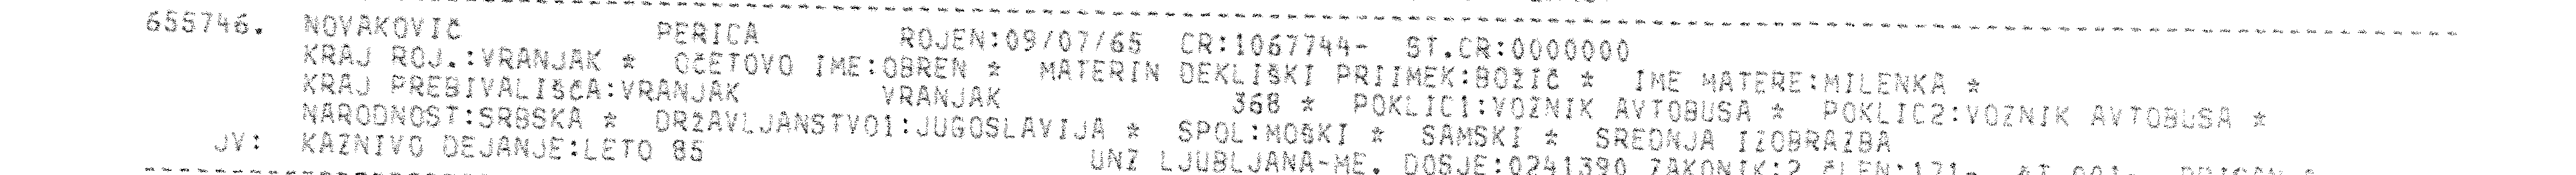 655746. NOVAKOVIČ PERICA ROJEN:09/07/65 CR:1067744- ST.CR:0000000
KRAJ ROJ.:VRANJAK * OČETOVO IME:OBREN * MATERIN DEKLIŠKI PRIIMEK:BOŽIČ * IME MATERE:MILENKA *
KRAJ PREBIVALIŠČA:VRANJAK VRANJAK 368 * POKLIC1:VOZNIK AVTOBUSA * POKLIC2:VOZNIK AVTOBUSA *
NARODNOST:SRBSKA * DRŽAVLJANSTVO1:JUGOSLAVIJA * SPOL:MOŠKI * SAMSKI * SREDNJA IZOBRAZBA
JV: KAZNIVO DEJANJE:LETO 85 UNZ LJUBLJANA-ME. DOSJE:0241390 ZAKONIK:2 ČLEN:171.